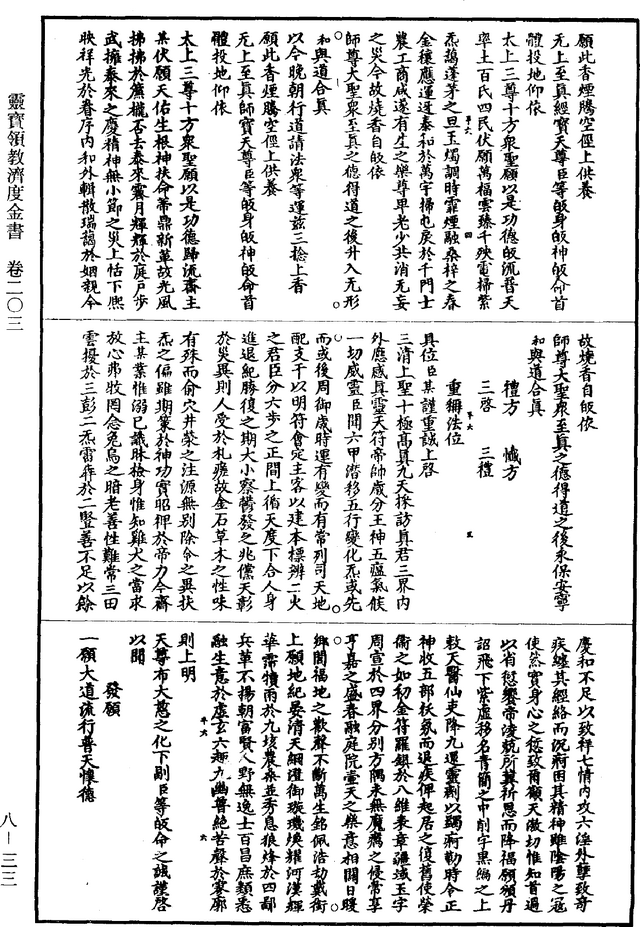 靈寶領教濟度金書 卷二〇三
八—三三
願此香煙騰空徑上供養
无上至真經寶天尊臣等皈身皈神皈命首
體投地仰依
太上三尊十方眾聖願以是功德皈流普天
率土百氏四民伏願萬福雲臻千殃電掃紫
炁藹蓬茅之旦玉燭調時霏煙融桑梓之春
金穰應運迓泰和於萬宇掃屯戾於千門士
農工商咸遂有生之樂尊卑老少共消无妄
之災今故燒香自皈依
師尊大聖眾至真之德得道之後升入无形
和與道合真
以今晚朝行道請法眾等運茲三捻上香
願此香煙騰空徑上供養
无上至真師寶天尊臣等皈身皈神皈命首
體投地仰依
太上三尊十方眾聖願以是功德歸流齋主
某伏願天佑生根神扶命蒂鼎新革故光風
拂拂於簾櫳否去泰來霽月輝輝於庭戶步
武擁泰來之慶精神無小節之災上怙下熙
映祥光於眷序內和外輯散瑞藹於姻親今
故燒香自皈依
師尊大聖眾至真之德得道之後永保安寧
和與道合真
禮方 懺方
三啓 三禮
重稱法位
具位臣某謹重誠上啓
三清上聖十極高真九天採訪真君三界內
外應感真靈天符帝帥歲分王神五瘟氣候
一切威靈臣聞六甲潛移五行變化炁或先
而或後周御歲時運有變而有常列司天地
配支干以明符會定主客以建本標辨二火
之君臣分六步之正間上循天度下合人身
進退紀勝復之期大小察鬱發之兆儻天彰
於災異則人受於札瘥故金石草木之性味
有殊而俞穴井榮之注源無別除令之異扶
炁之偏雖期藥於神功實昭禆於帝力今齋
主某業惟溺己識昧檢身惟知雞犬之當求
放心弗牧罔念兔烏之暗老善性難常三田
雲擾於三彭二炁雷犇於二豎善不足以餘
慶和不足以致祥七情內攻六淫外孽致奇
疾纏其經絡而沉痾困其精神雖陰陽之冦
使然實身心之愆致爾顧天儆切惟知首過
以省愆饗帝淩兢所冀祈恩而降福願頒丹
詔飛下紫虛移名青簡之中削字黑編之上
敕天醫仙吏降九還靈劑以蠲痾勒時令正
神收五部祅氛而退疾俾起居之復舊使榮
衛之如初金符羅鎮於八維衷章疆域玉字
周宣於四界分別方隅永無魔癘之侵常享
亨嘉之盛春融庭院壼天之樂意相關日暖
鄉閭福地之歡聲不斷萬生銘佩浩劫戴銜
上願地紀晏清天綱澄御璇璣煥耀河漢輝
華霈犢雨於九垓農桑並秀息狼烽於四鄙
兵革不揚朝富賢人野無逸士百昌庶類悉
融生意於虛玄六趣九幽普絕苦聲於寥廓
則上明
天尊布大慈之化下副臣等皈命之誠謹啓
以聞
發願
一願大道流行普天懷德